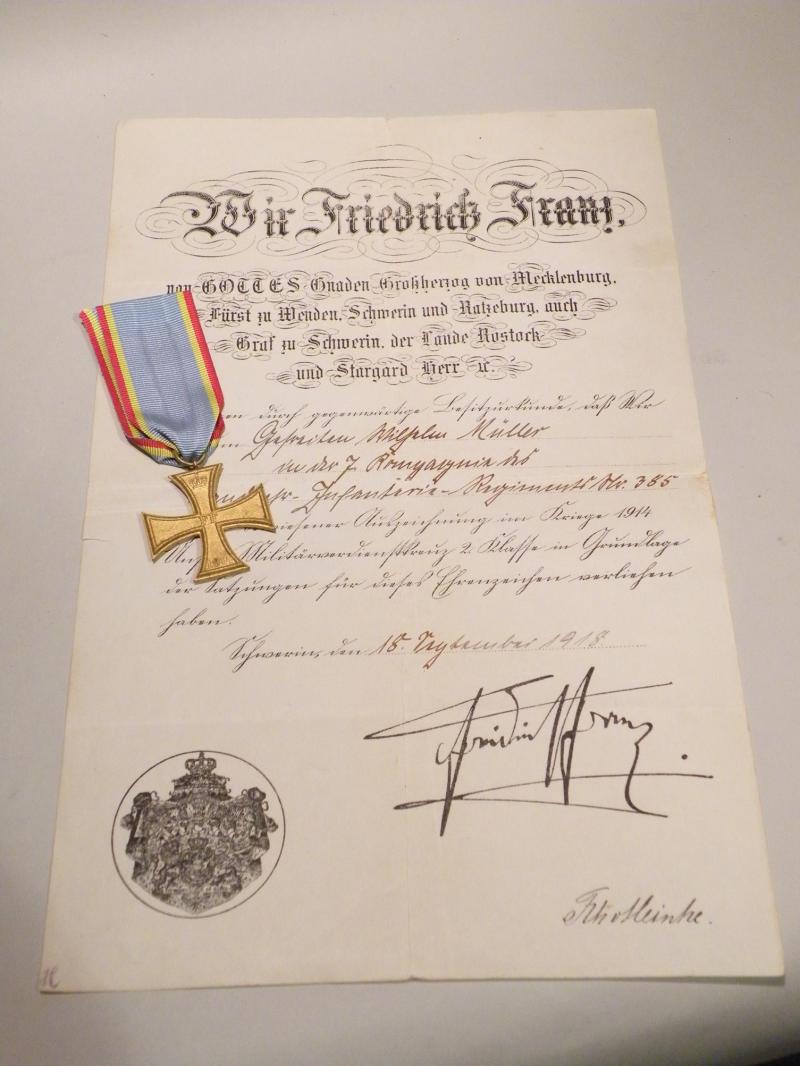 Wir Friedrich Franz,
von GOTTES Gnaden Großherzog von Mecklenburg,
Fürst zu Wenden, Schwerin und Ratzeburg, auch
Graf zu Schwerin, der Lande Rostock
und Stargard Herr ꝛc.
durch gegenwärtige Besitzurkunde, daß Wir
Gefreiten Wilhelm Müller
in der 7. Kompagnie des
Infanterie-Regiments Nr. 385
Auszeichnung im Kriege 1914
Militärverdienstkreuz 2. Klasse in Grundlage
der Satzungen für dieses Ehrenzeichen verliehen
haben.
Schwerin, den 18. September 1918.
Friedrich Franz.